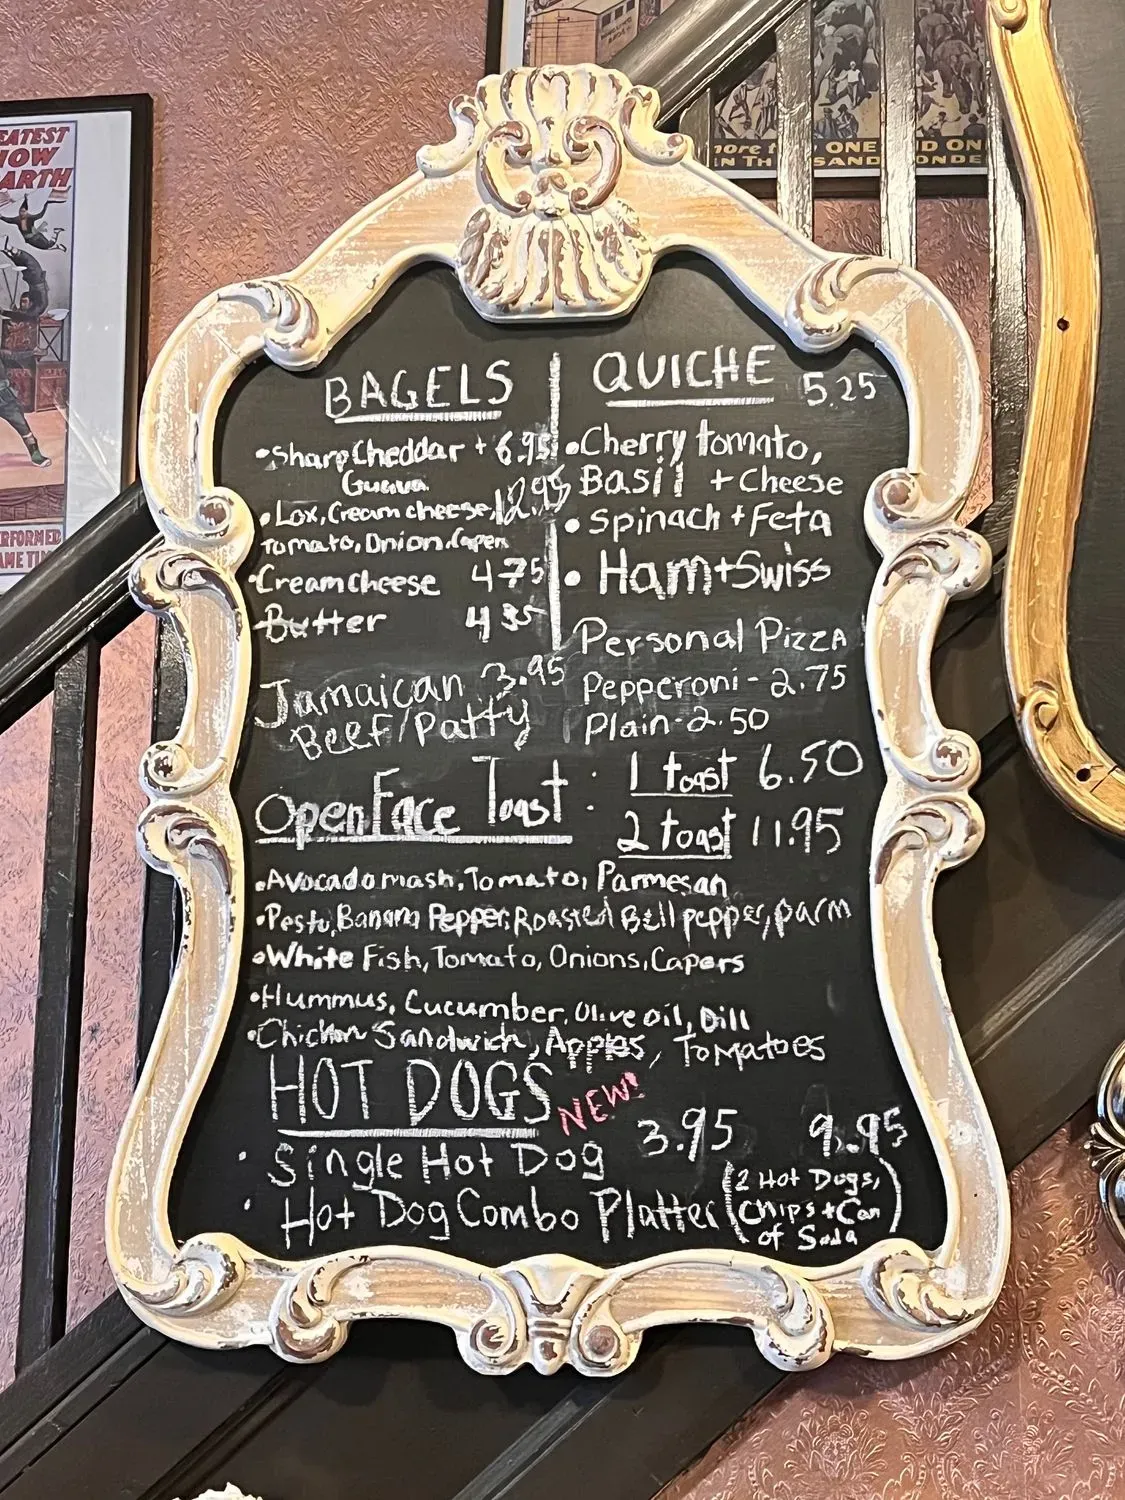 EATEST
HOW
ARTH
ERFORMED
AME TI
ONE
ND ON
N TH
SAND
ONDE
BAGELS
• Sharp Cheddar + 6.95
Guava
• Lox, Cream cheese, 12.95
Tomato, Onion, Caper
• Cream cheese 4.75
Butter
Jamaican 3.95
Beef/Patty
QUICHE 5.25
• Cherry tomato,
Basil + Cheese
• Spinach + Feta
• Ham + Swiss
Personal Pizza
Pepperoni - 2.75
Plain - 2.50
Open Face Toast : 1 toast 6.50
2 toast 11.95
• Avocado mash, Tomato, Parmesan
• Pesto, Banana Pepper, Roasted Bell pepper, parm
• White Fish, Tomato, Onions, Capers
• Hummus, Cucumber, Olive oil, Dill
• Chicken Sandwich, Apples, Tomatoes
HOT DOGS NEW!
• Single Hot Dog 3.95
• Hot Dog Combo Platter 9.95
(2 Hot Dogs,
Chips + Can
of Soda)